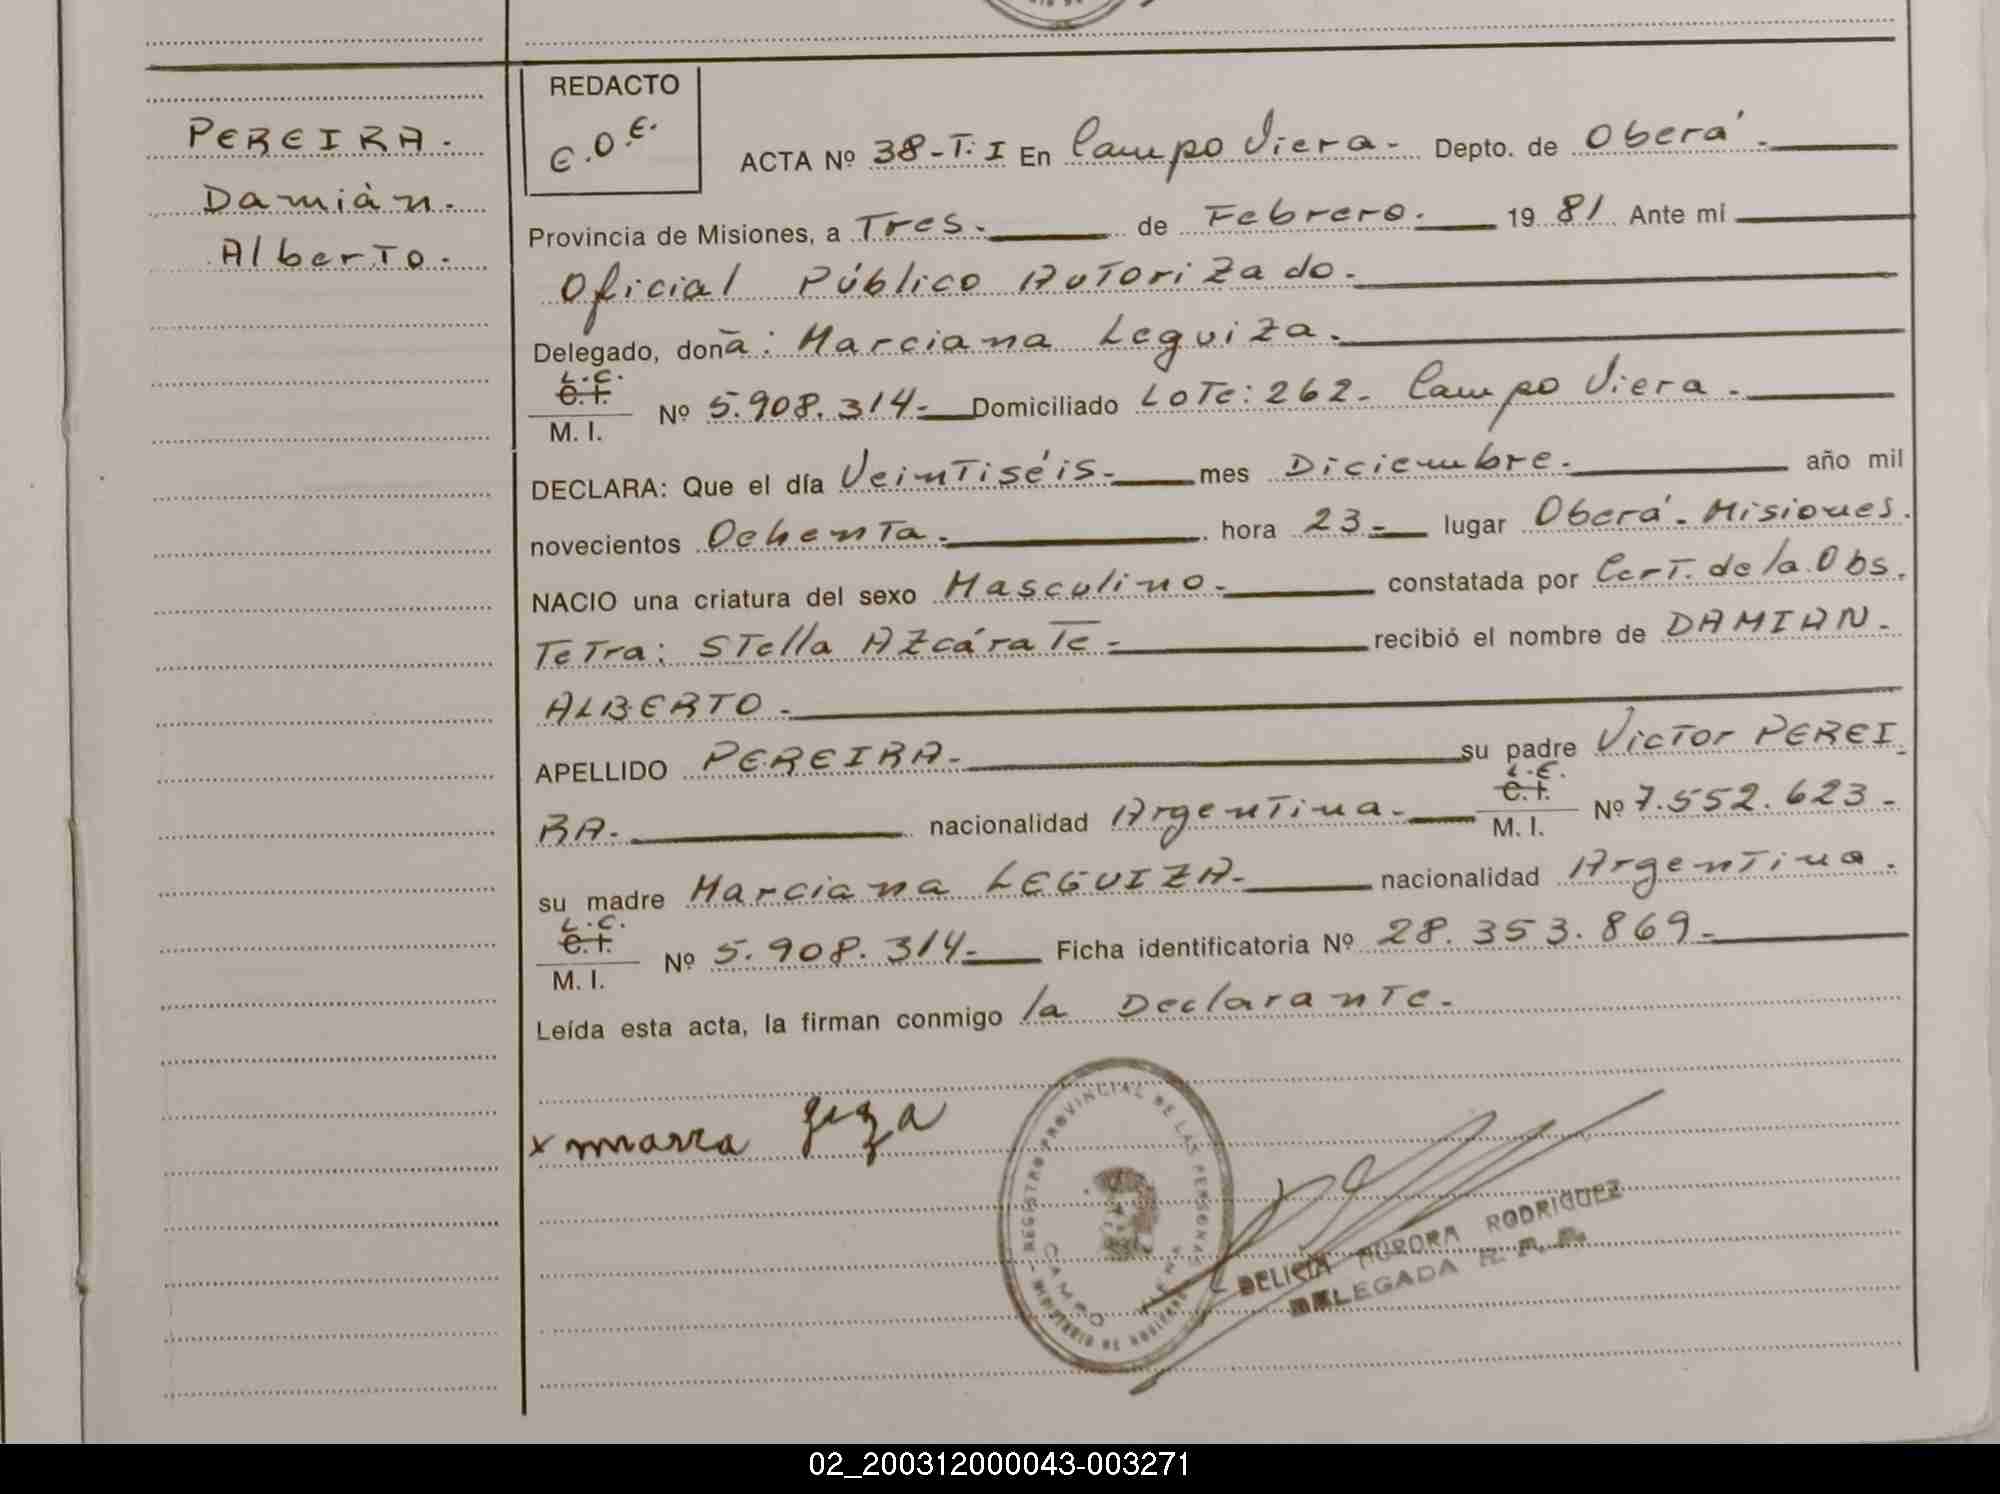 REDACTO
C.O.E.
PEREIRA.
Damiàn.
Alberto.
ACTA Nº 38-T.I En Campo Viera.- Depto. de Oberá.
Provincia de Misiones, a Tres.- de Febrero. 1981 Ante mi
Oficial Público Autorizado.
Delegado, doña: Marciana Leguiza.
L.C.
C. I.
M. I.
Nº 5.908.314- Domiciliado Lote: 262- Campo Viera.
DECLARA: Que el día Veintiséis.- mes Diciembre. año mil
novecientos Ochenta. hora 23.- lugar Oberá.- Misiones.
NACIO una criatura del sexo Masculino.- constatada por Cert. de la Obs.
Tetra: Stella Azcárate.- recibió el nombre de DAMIAN.
ALBERTO.-
APELLIDO PEREIRA.- su padre Victor PEREI
RA.- nacionalidad Argentina.-
L.E.
C. I.
M. I.
Nº 7.552.623-
su madre Marciana LEGUIZA.- nacionalidad Argentina.
L.C.
C. I.
M. I.
Nº 5.908.314.- Ficha identificatoria Nº 28.353.869-
Leída esta acta, la firman conmigo la Declarante.
x marra giza
REGISTRO PROVINCIAL DE LAS PERSONAS
CAMPO VIERA
MISIONES
DELICIA AURORA RODRIGUEZ
DELEGADA R. P. P.
02_200312000043-003271